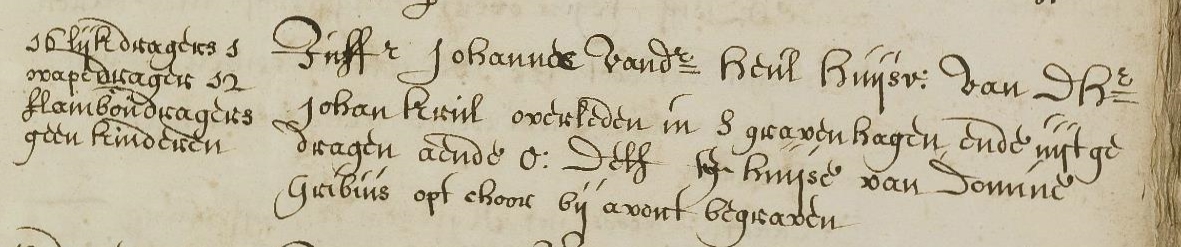 16 lijkdragers 1
wapedrager 12
flamboudragers
geen kinderen
Juffr Johannes vandr Heul huijsv: van dHr
Johan Krul overleden in S gravenhagen ende uijtge
dragen aende O: Delf huijse van Domine
Gribius opt choor bij avont begraven